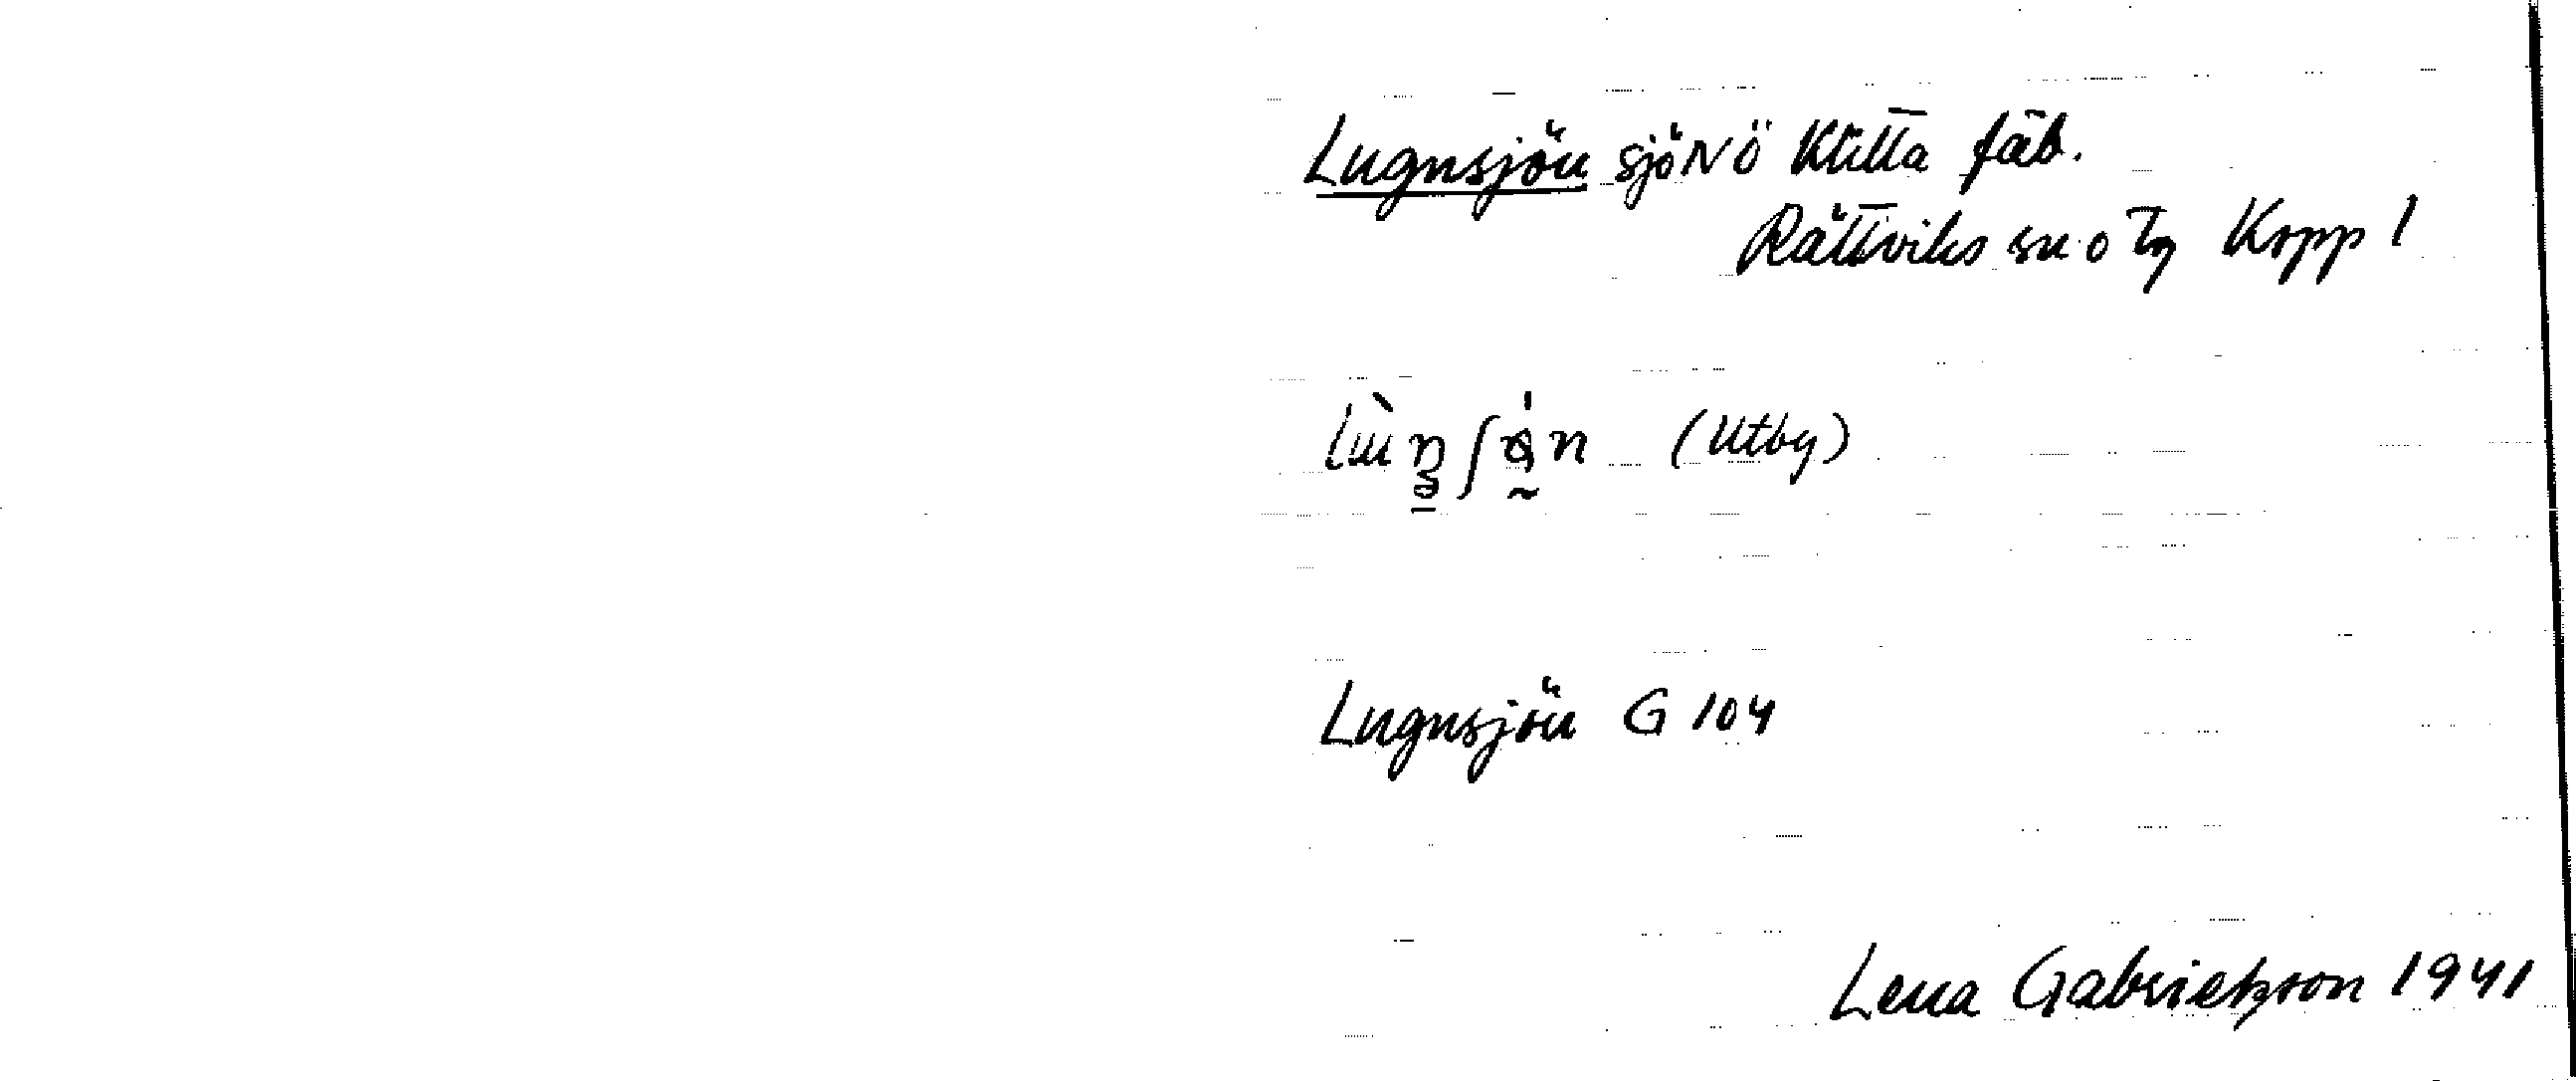 Lugnsjön sjö NÖ Klitta fäb.
Rättviks sn o tg Kopp l
(Utby)
Lugnsjön G 104
Lena Gabrielsson 1941